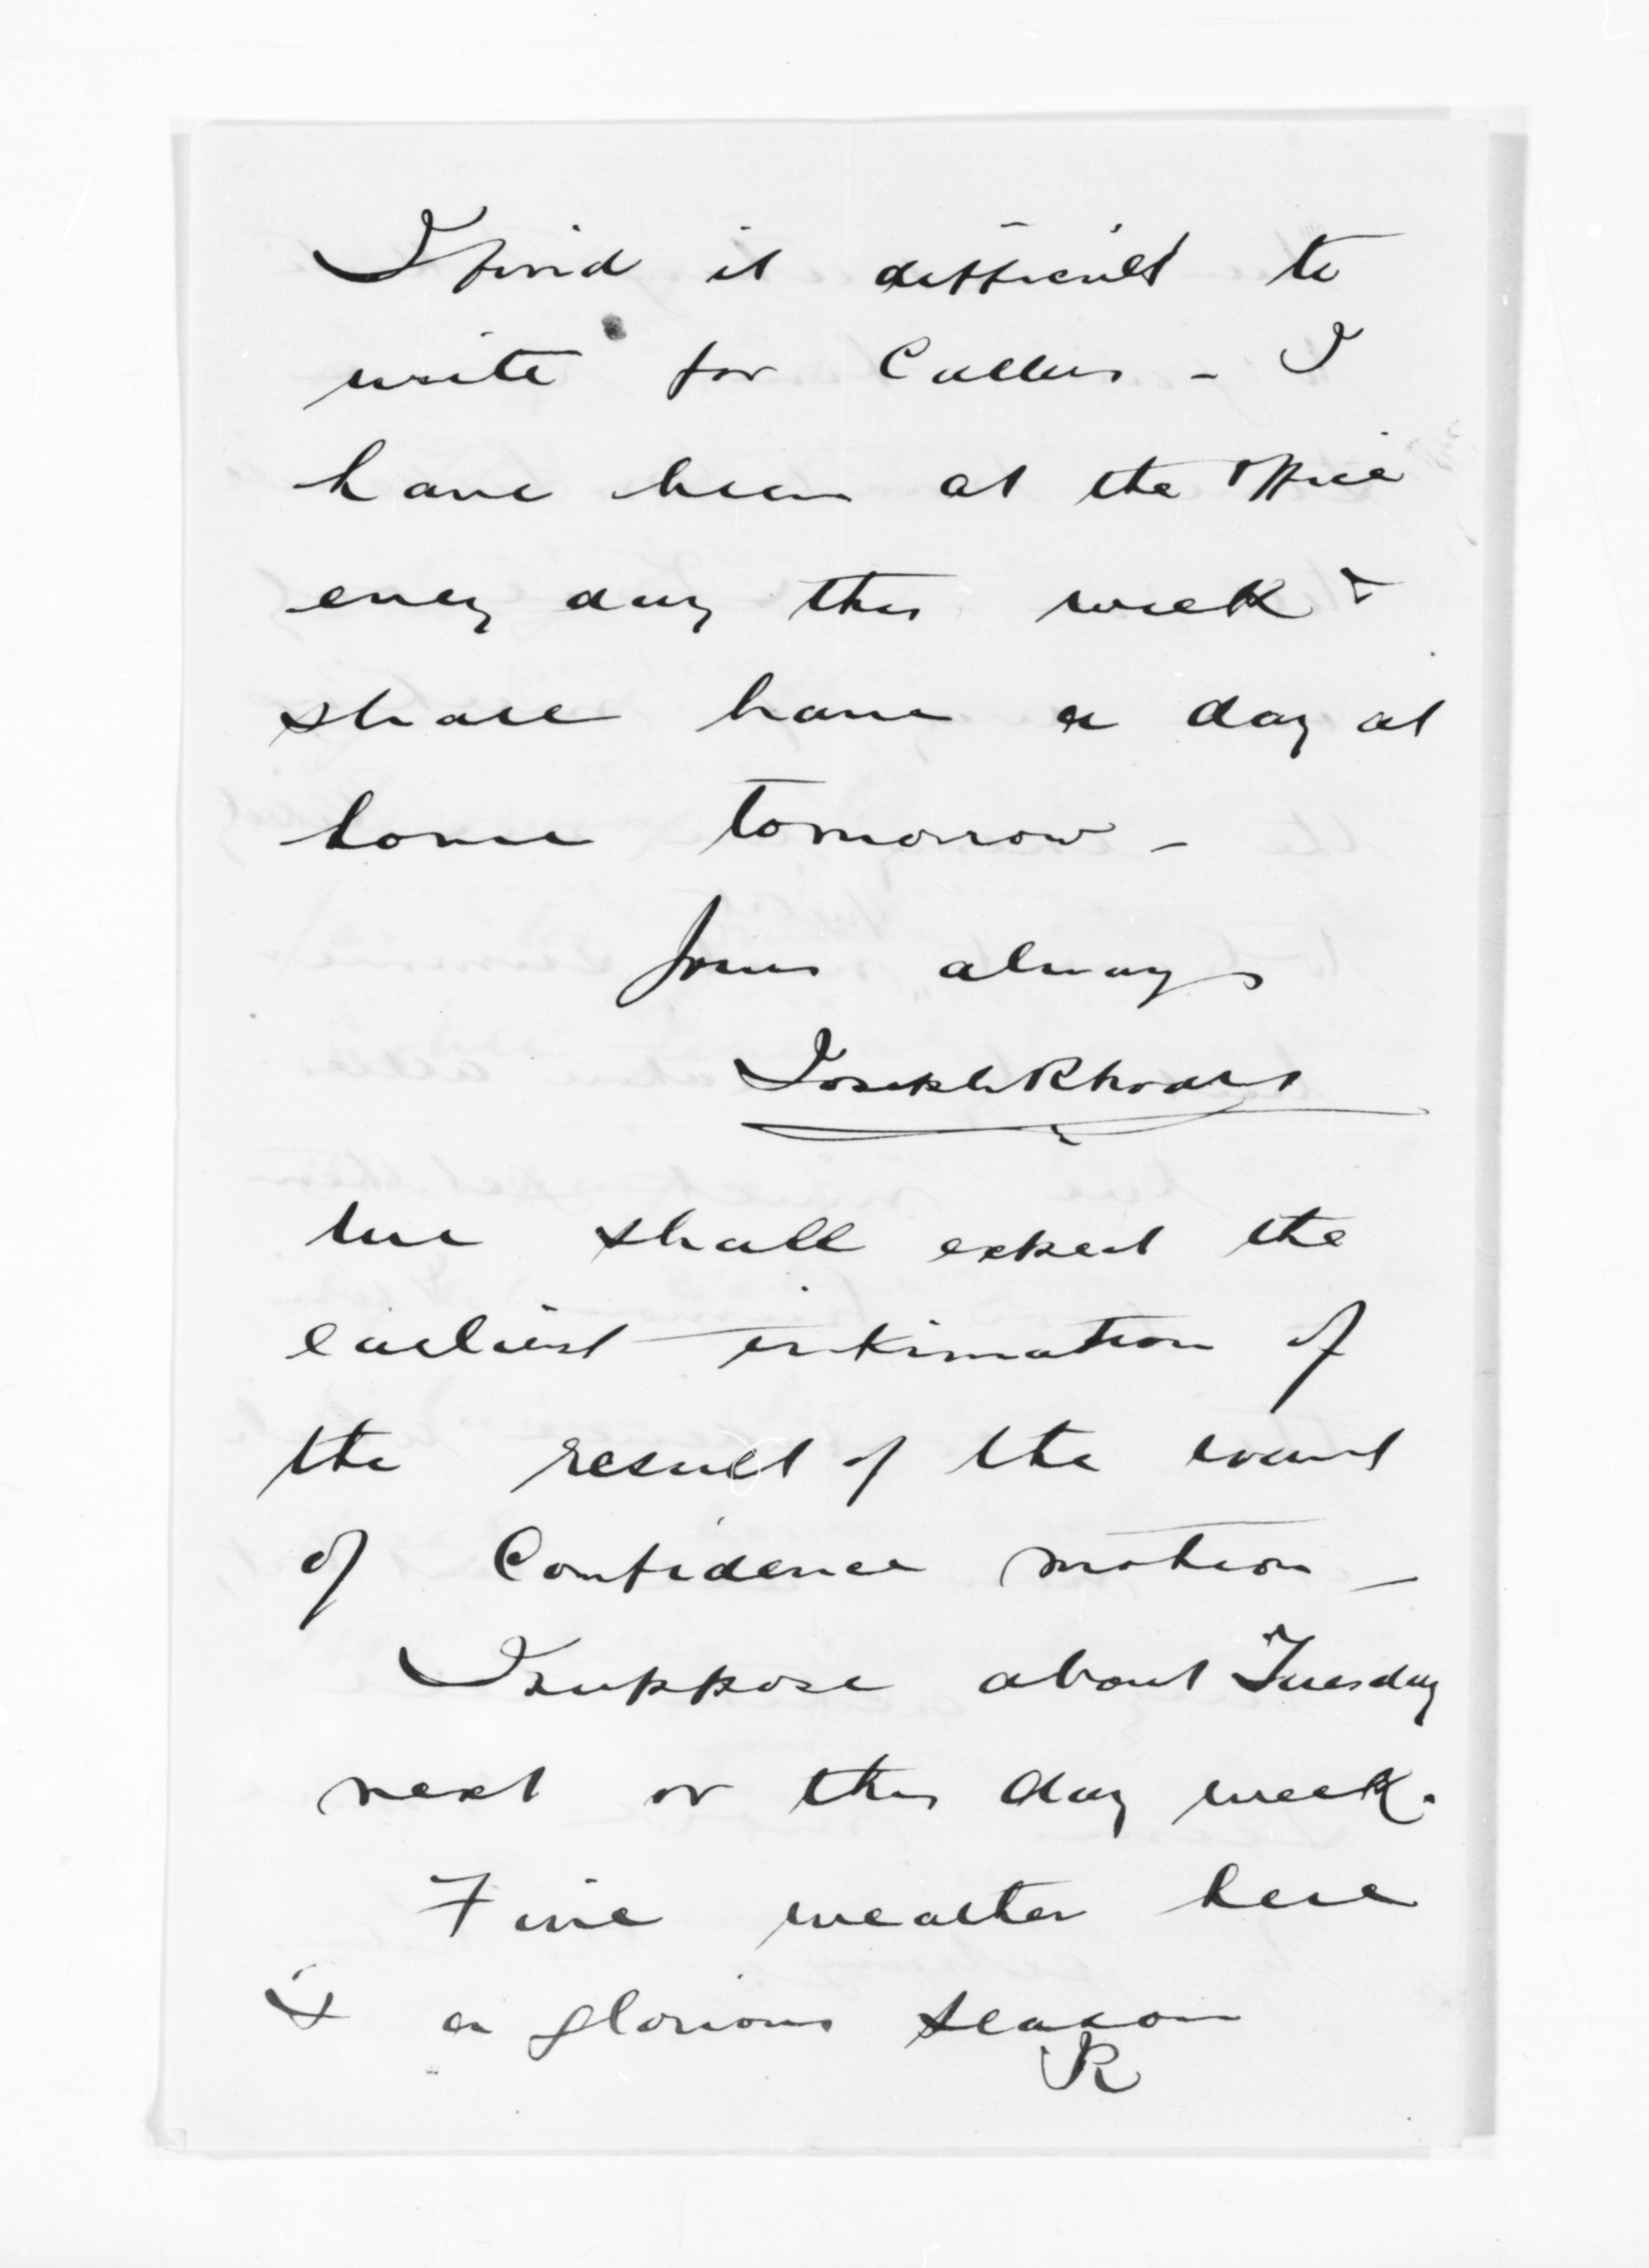 I find it difficult to
write for Callers - I
have been at the Office
every day this week &
shall have a day at
home tomorrow -
Yours always
Joseph Rhodes
We shall expect the
earliest intimation of
the result of the want
of Confidence motion -
I suppose about Tuesday
next or this day week.
Fine weather here
& a glorious season
R